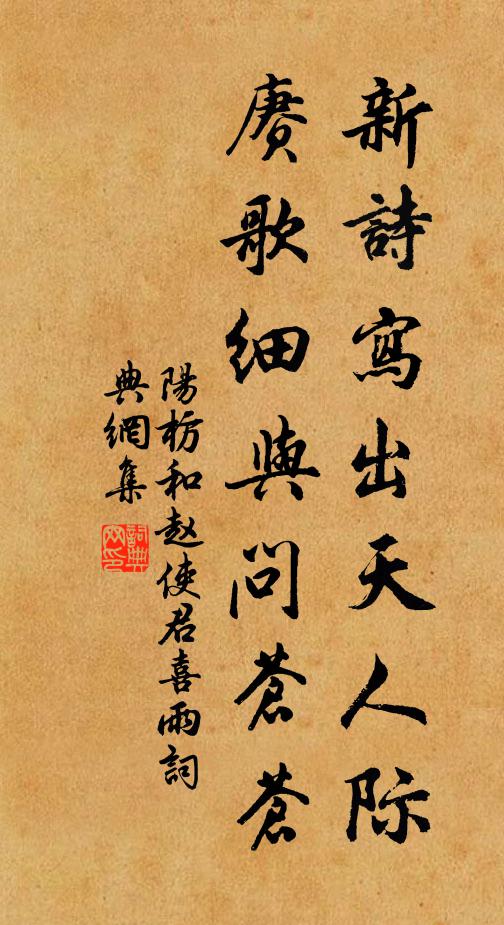 新詩寫出天人际
赓歌細與問蒼蒼
陽枋和赵使君喜雨
詞典網集
詞典网印